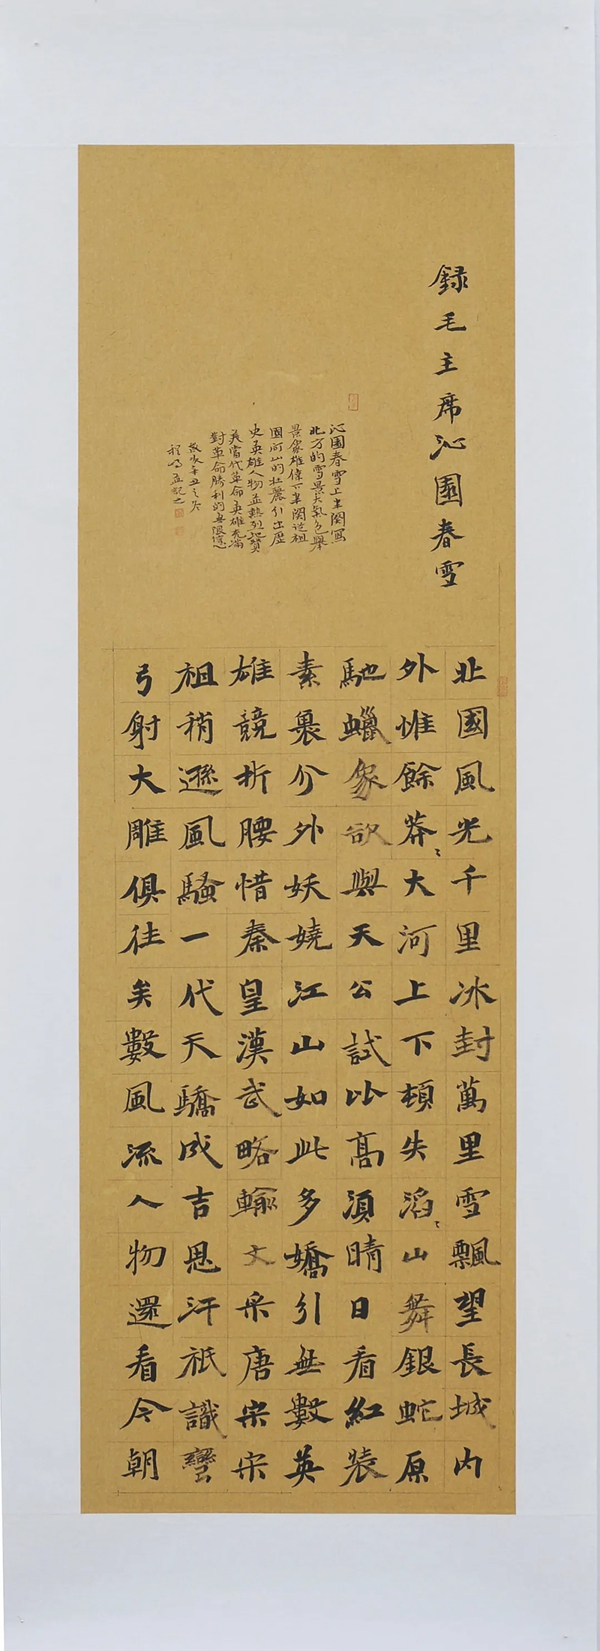 録毛主席沁園春雪
沁園春雪上半闋寫
北方的雪景大氣包舉
景象雄偉下半闋從祖
國河山的壯麗引出歷
史英雄人物並熱烈地贊
美當代革命英雄充滿
對革命勝利的無限信心
歲次辛丑之冬
記之
北國風光千里冰封萬里雪飄望長城内
外惟餘莽々大河上下頓失滔々山舞銀蛇原
馳蠟象欲與天公試比高須晴日看紅裝
素裹分外妖嬈江山如此多嬌引無數英
雄競折腰惜秦皇漢武略輸文采唐宗宋
祖稍遜風騷一代天驕成吉思汗祇識彎
弓射大雕俱往矣數風流人物還看今朝